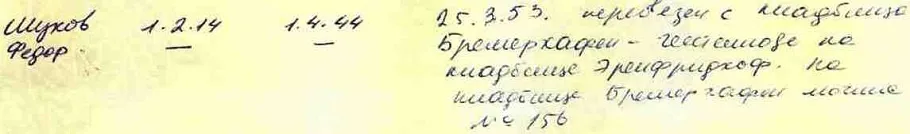 Шуков 1.2.14 1.4.44 25.3.53. перевезен с кладбища
Федор. Бремерхафен - на
кладбище Эренфридхоф. На
кладбище Бремерхафен могила
№ 156